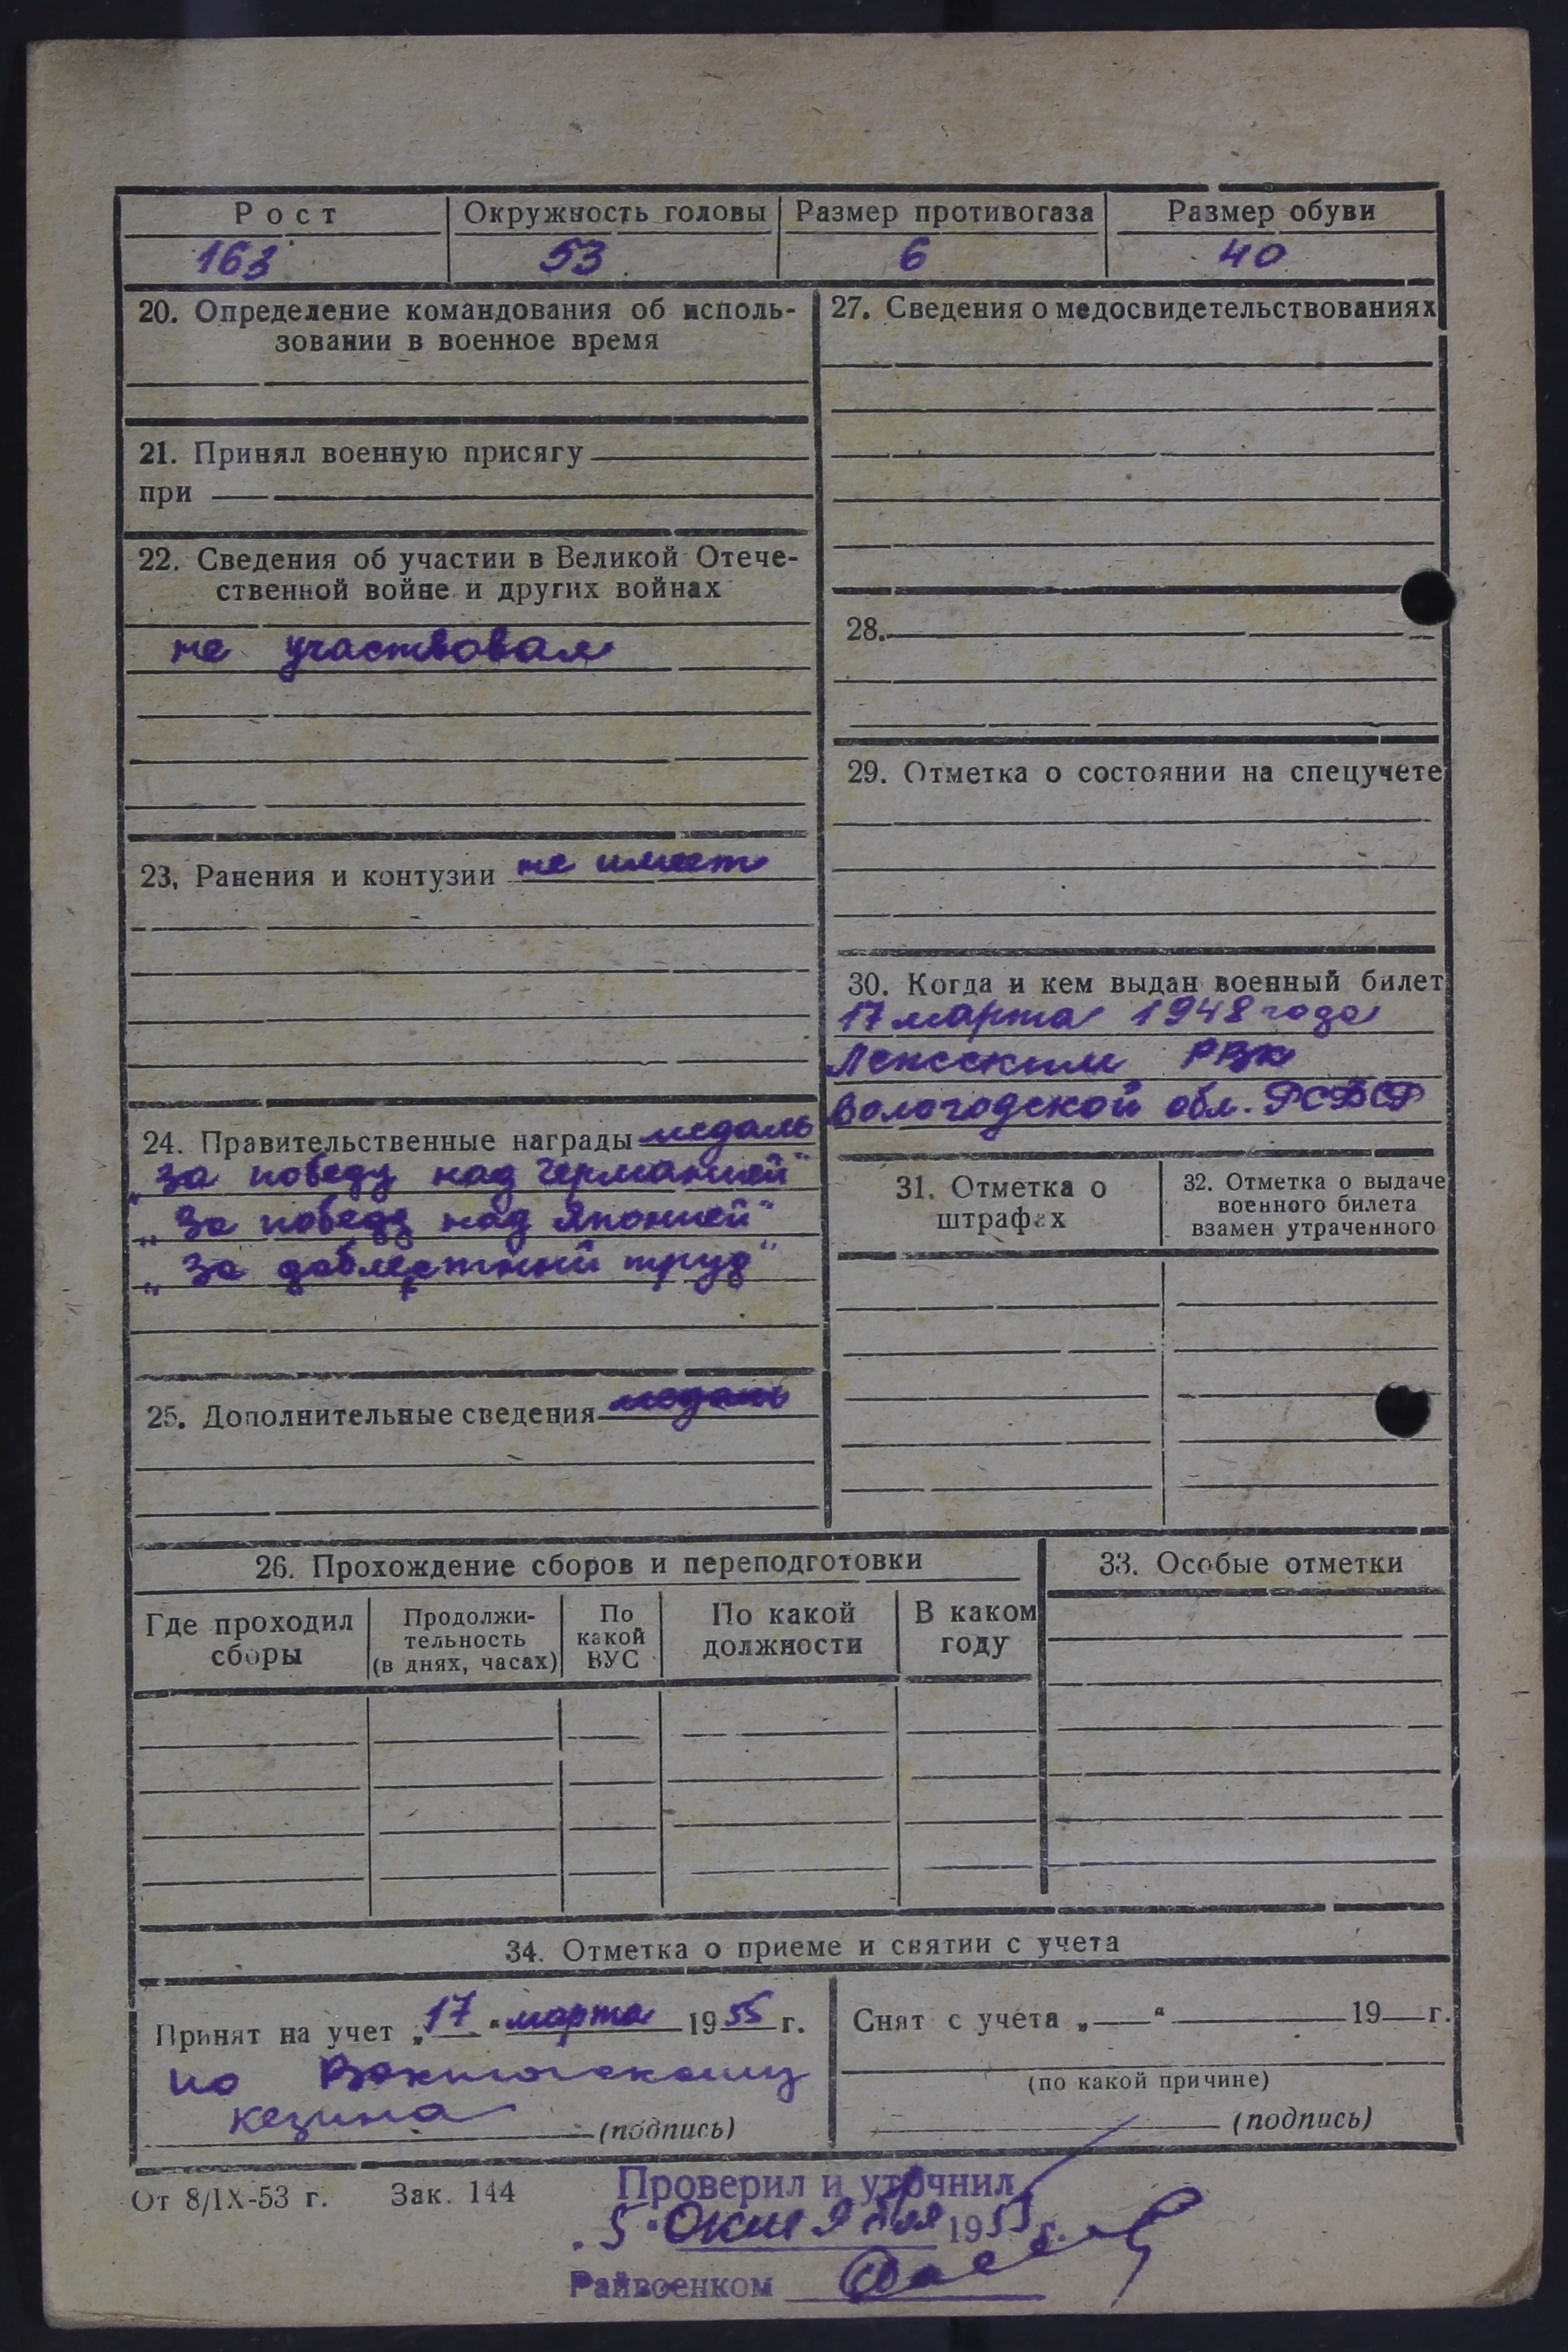 Рост Окружность головы Размер противогаза Размер обуви
163 53 6 40
20. Определение командования об исполь-
зовании в военное время
21. Принял военную присягу
при
22. Сведения об участии в Великой Отече-
ственной войне и других войнах
не участвовал
23. Ранения и контузии не имеет
24. Правительственные награды медаль
„За победу над Германией"
„За победу над Японией"
„За доблестный труд"
25. Дополнительные сведения медаль
27. Сведения о медосвидетельствованиях
28.
29. Отметка о состоянии на спецучете
30. Когда и кем выдан военный билет
17 марта 1948 года
Лежским РВК
Вологодской обл. РСФСР
31. Отметка о
штрафах
32. Отметка о выдаче
военного билета
взамен утраченного
26. Прохождение сборов и переподготовки
Где проходил
сборы
Продолжи-
тельность
(в днях, часах)
По
какой
ВУС
По какой
должности
В каком
году
33. Особые отметки
34. Отметка о приеме и снятии с учета
Принят на учет „17" марта 1955 г.
по
(подпись)
Снят с учета „ " 19 г.
(по какой причине)
(подпись)
От 8/IX-53 г. Зак. 144
Проверил и уточнил
„5" Октября 1955 г.
Райвоенком